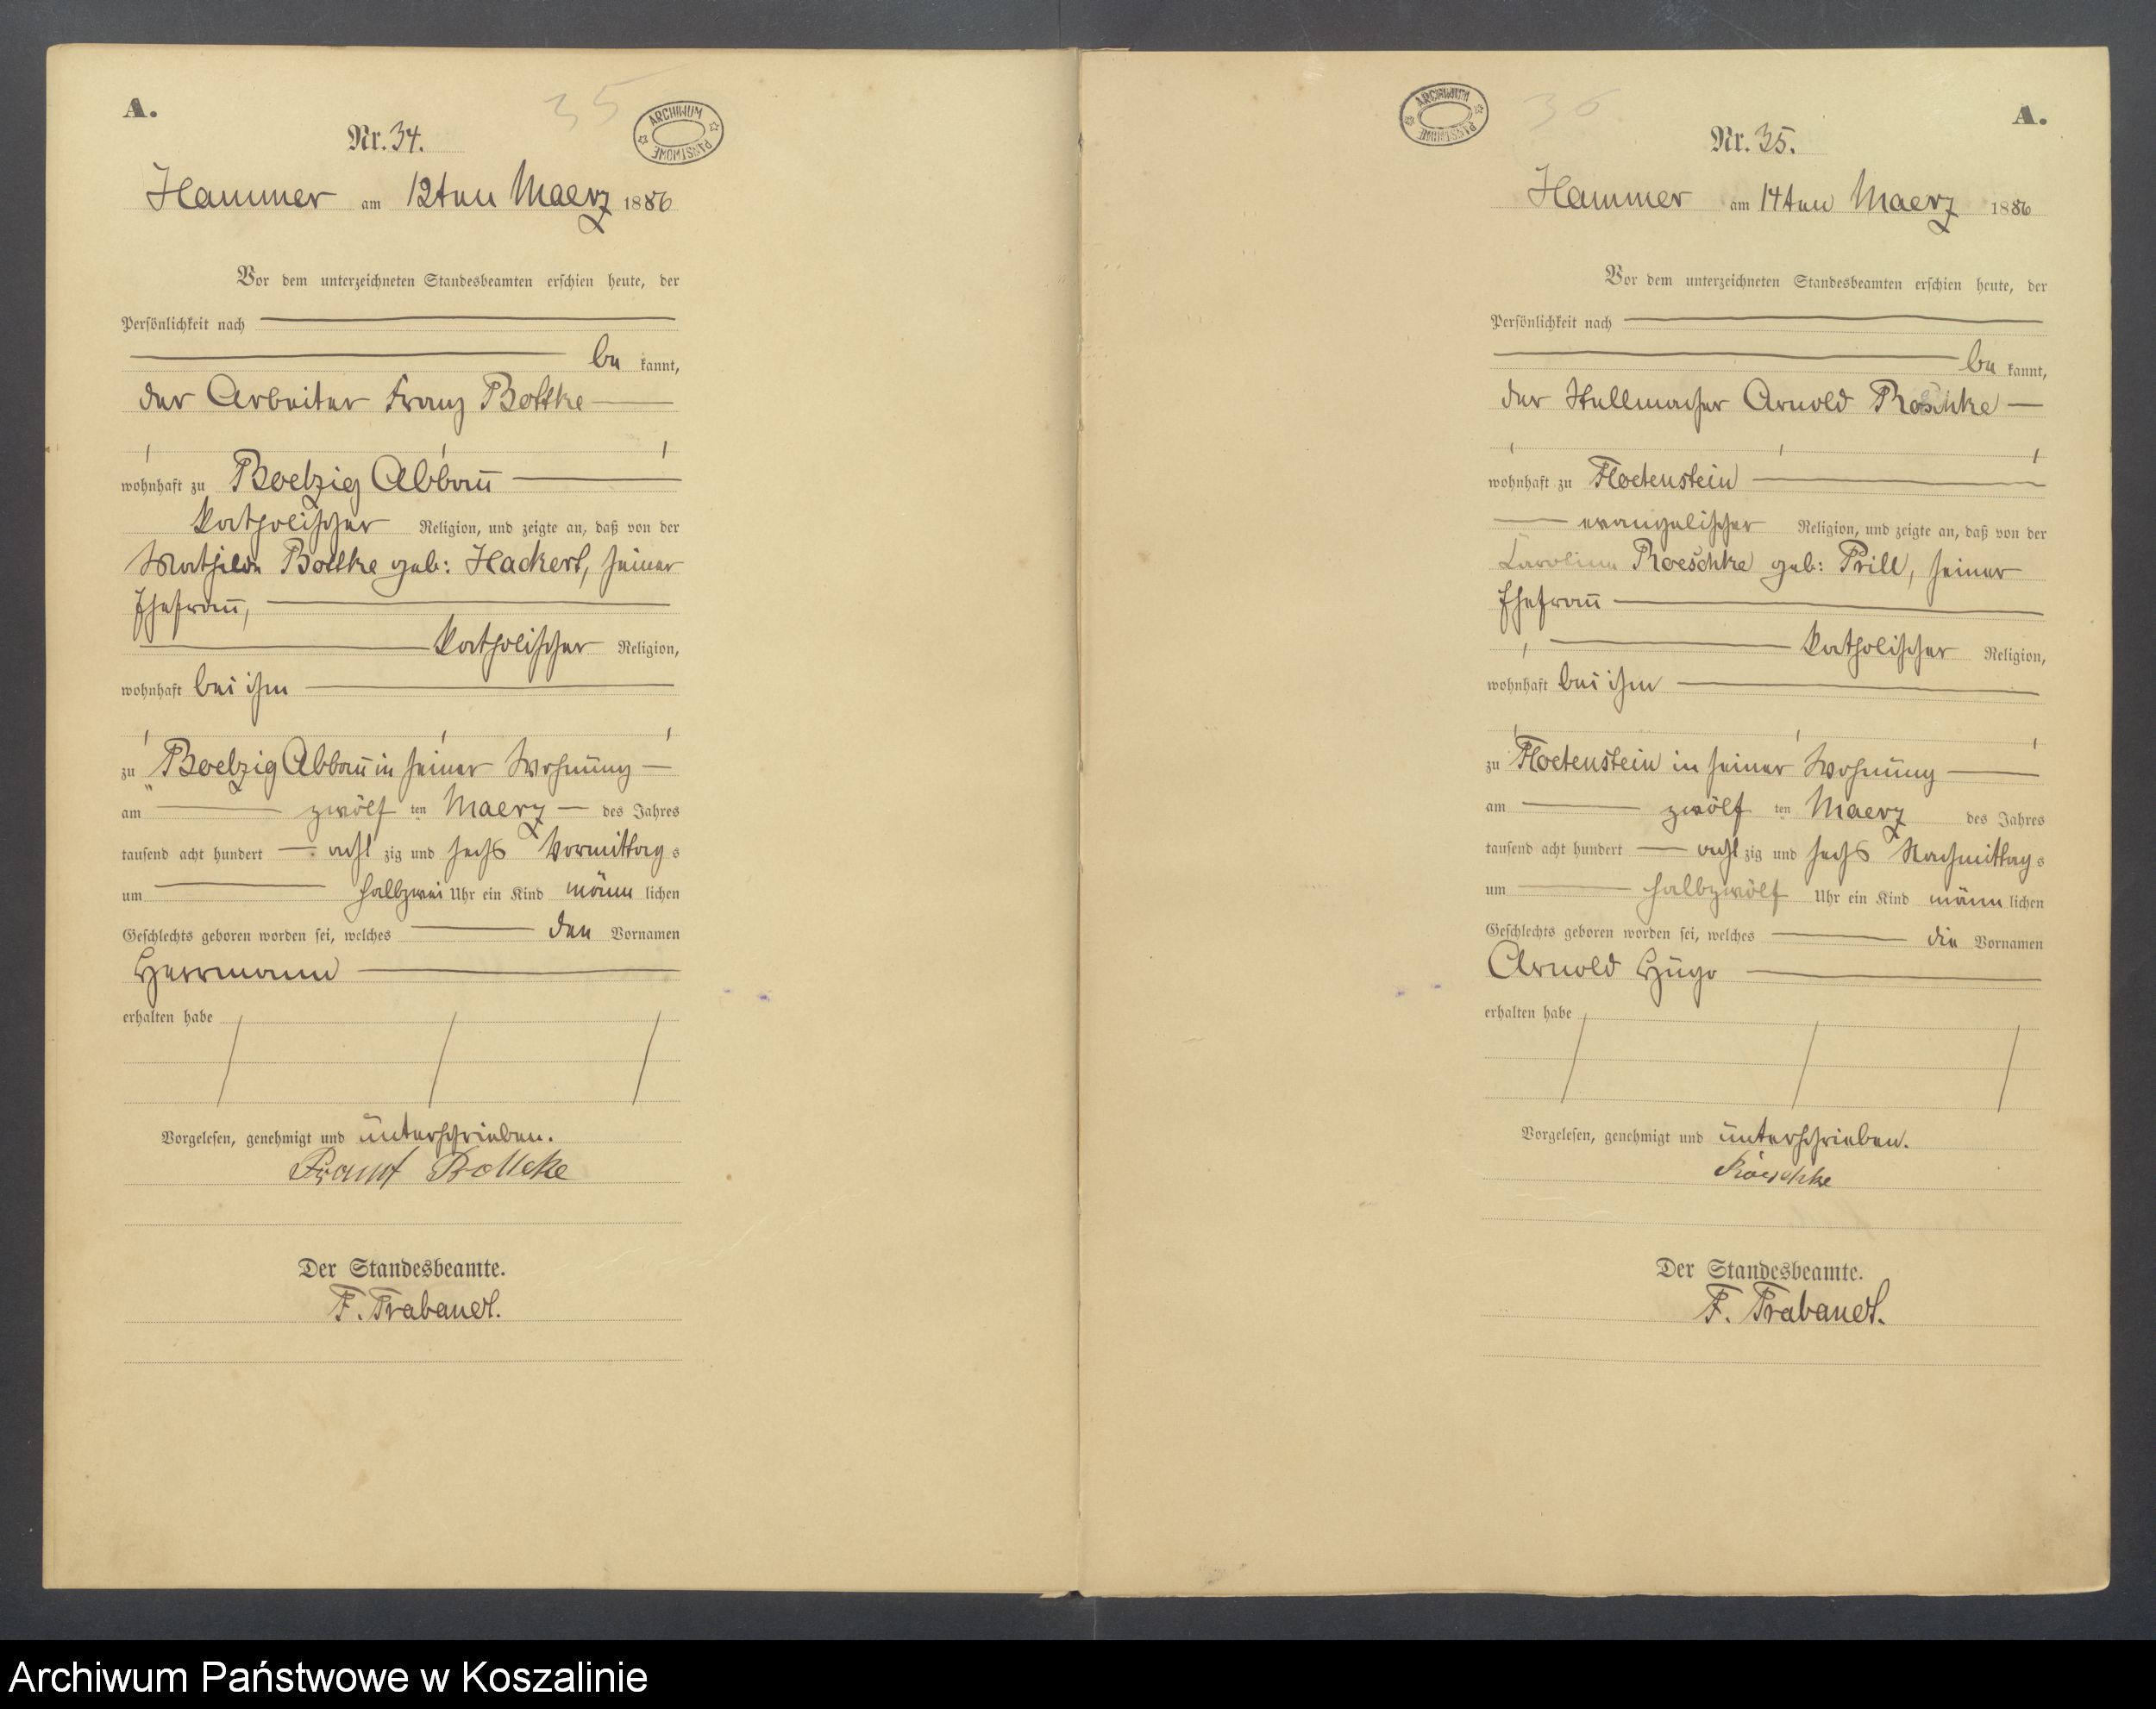 A.
35
ARCHIWUM PAŃSTWOWE
Nr. 34.
Hammer am 12ten Maerz 1886
Vor dem unterzeichneten Standesbeamten erschien heute, der
Persönlichkeit nach
be kannt,
der Arbeiter Franz Boltke
wohnhaft zu Boelzig Abbau
katholischer Religion, und zeigte an, daß von der
Mathilde Boltke geb: Hackert, seiner
Ehefrau,
katholischer Religion,
wohnhaft bei ihm
zu Boelzig Abbau in seiner Wohnung
am zwölf ten Maerz des Jahres
tausend acht hundert acht zig und sechs Vormittag s
um halbzwei Uhr ein Kind männ lichen
Geschlechts geboren worden sei, welches den Vornamen
Herrmann
erhalten habe
Vorgelesen, genehmigt und unterschrieben.
Der Standesbeamte.
F. Trabandt.
ARCHIWUM PAŃSTWOWE
36
A.
Nr. 35.
Hammer am 14ten Maerz 1886
Vor dem unterzeichneten Standesbeamten erschien heute, der
Persönlichkeit nach
be kannt,
der Stellmacher Arnold Röschke
wohnhaft zu Floetenstein
evangelischer Religion, und zeigte an, daß von der
Caroline Roeschke geb: Prill, seiner
Ehefrau
katholischer Religion,
wohnhaft bei ihm
zu Floetenstein in seiner Wohnung
am zwölf ten Maerz des Jahres
tausend acht hundert acht zig und sechs Nachmittag s
um halbzwölf Uhr ein Kind männ lichen
Geschlechts geboren worden sei, welches die Vornamen
Arnold Hugo
erhalten habe
Vorgelesen, genehmigt und unterschrieben.
Röeschke
Der Standesbeamte.
F. Trabandt.
Archiwum Państwowe w Koszalinie